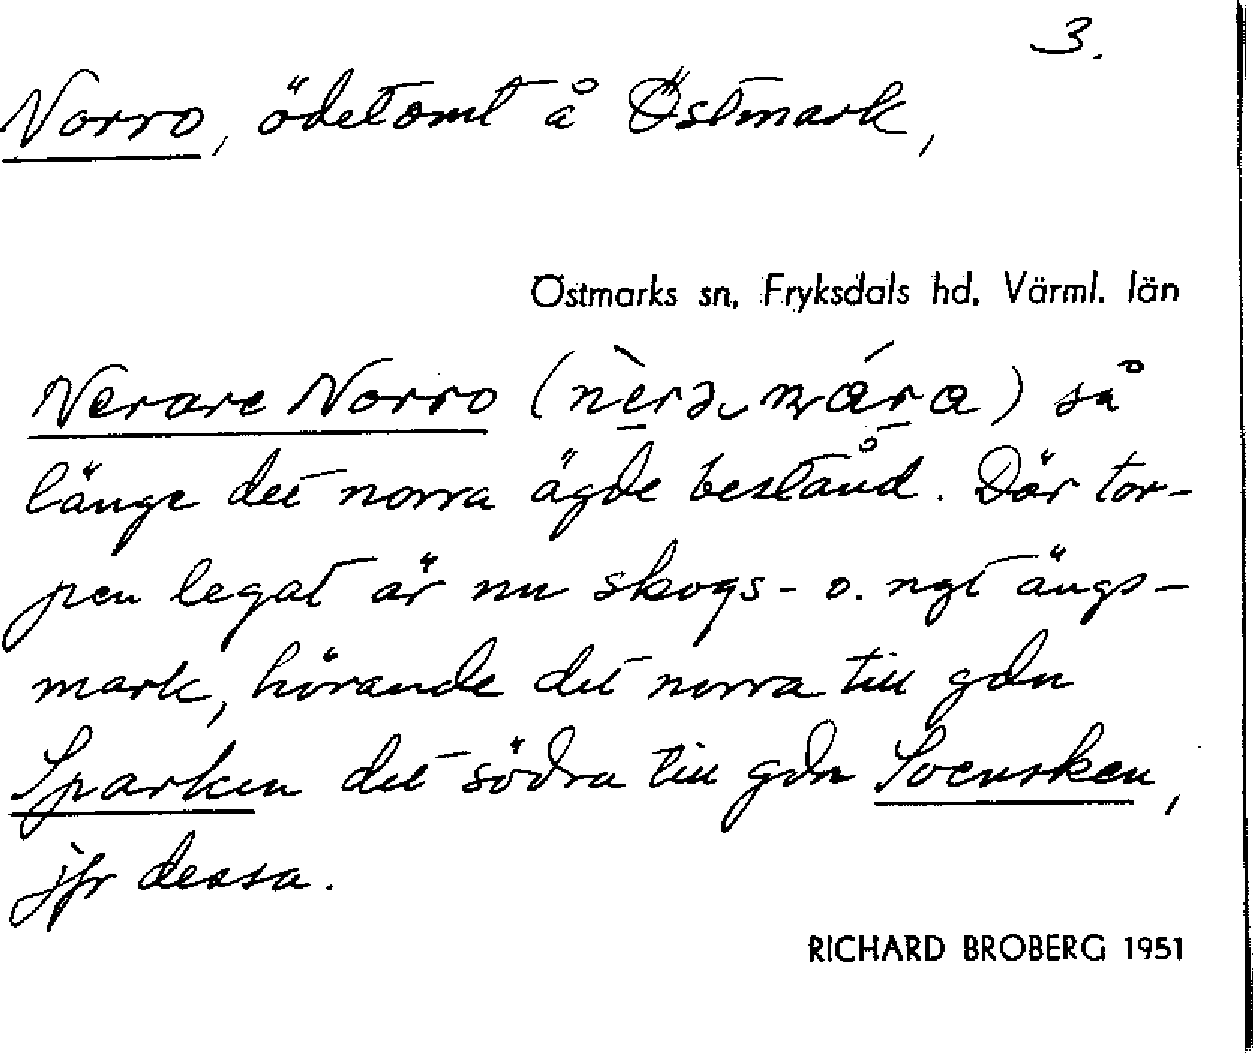 3.
Norro, ödetomt å Östmark,
Östmarks sn, Fryksdals hd. Värml. län
Nerare Norro () så
länge det norra ägde bestånd. Där tor-
pen legat är nu skogs- o. ngt ängs-
mark, hörande det norra till gdn
Sparken det södra till gdn Svensken,
jfr dessa.
RICHARD BROBERG 1951